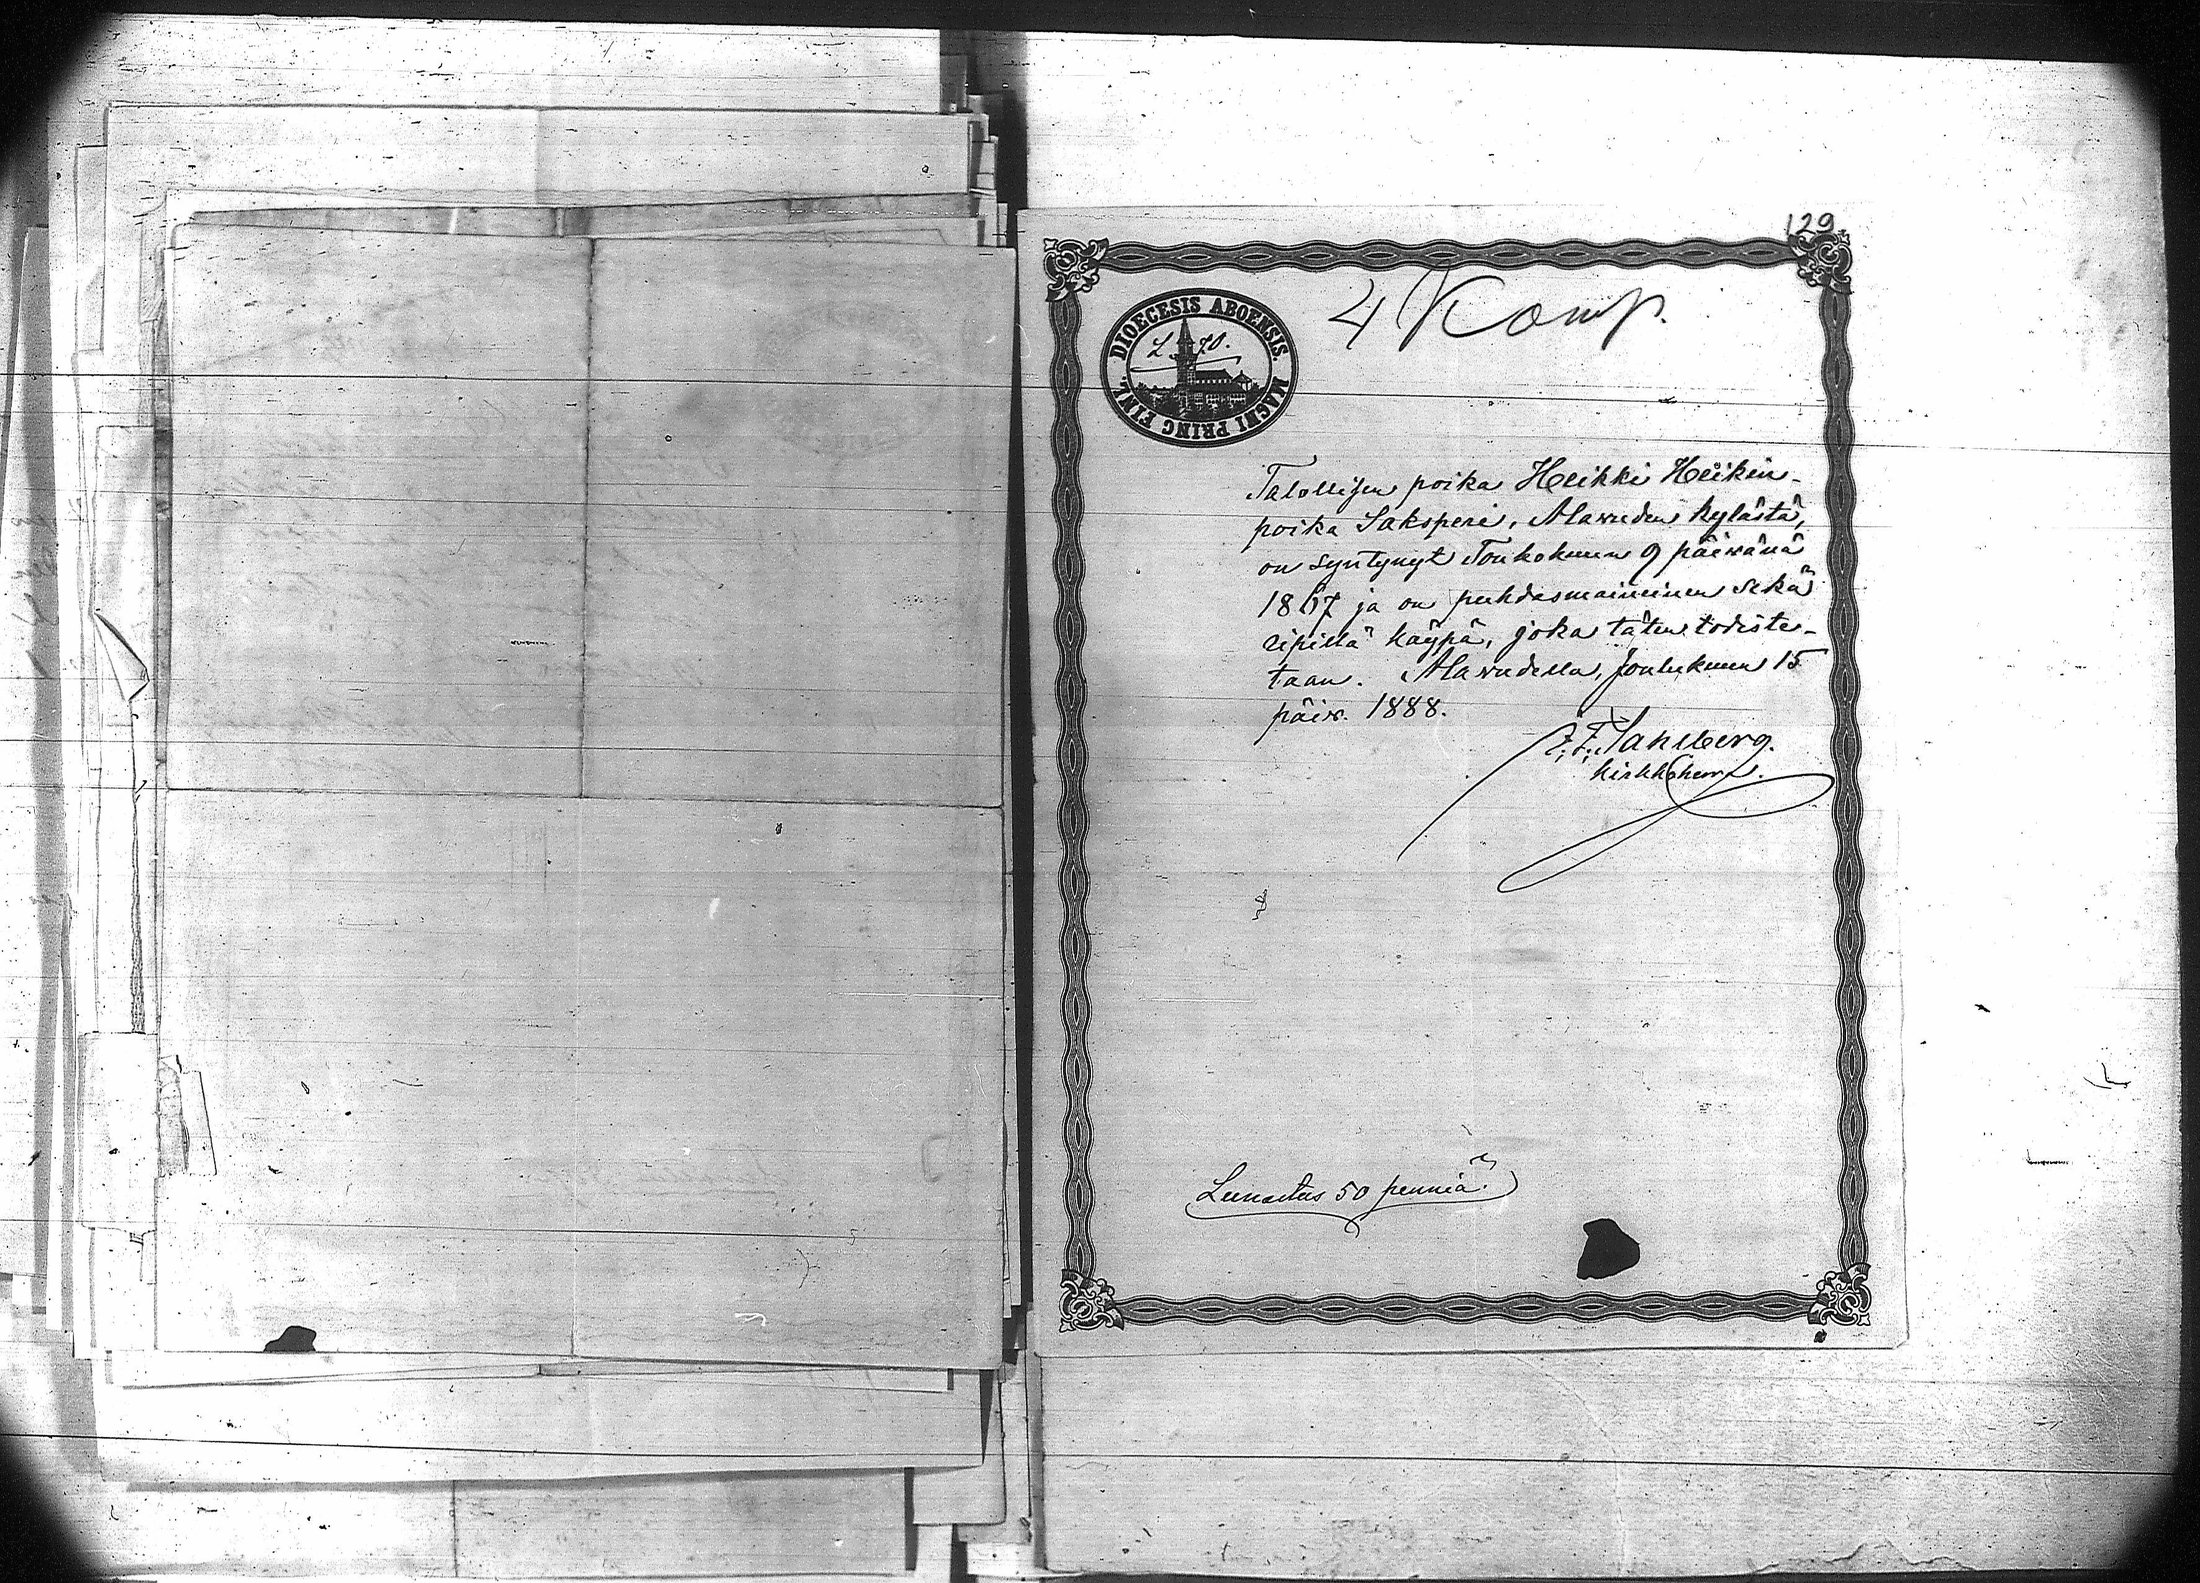 129.
4 Komp.
DIOECESIS ABOENSIS. MAGNI PRINC FINL.
Talollisen poika Heikki Heikin-
poika Saksperi, Alawuden kylästä,
on syntynyt Toukokuun 9 päivänä
1867 ja on puhdasmaineinen sekä
ripillä käypä, joka täten todiste-
taan. Alawudella, Joulukuun 15
päiv. 1888.
Sahlberg.
kirkkoherra.
Lunastus 50 penniä.